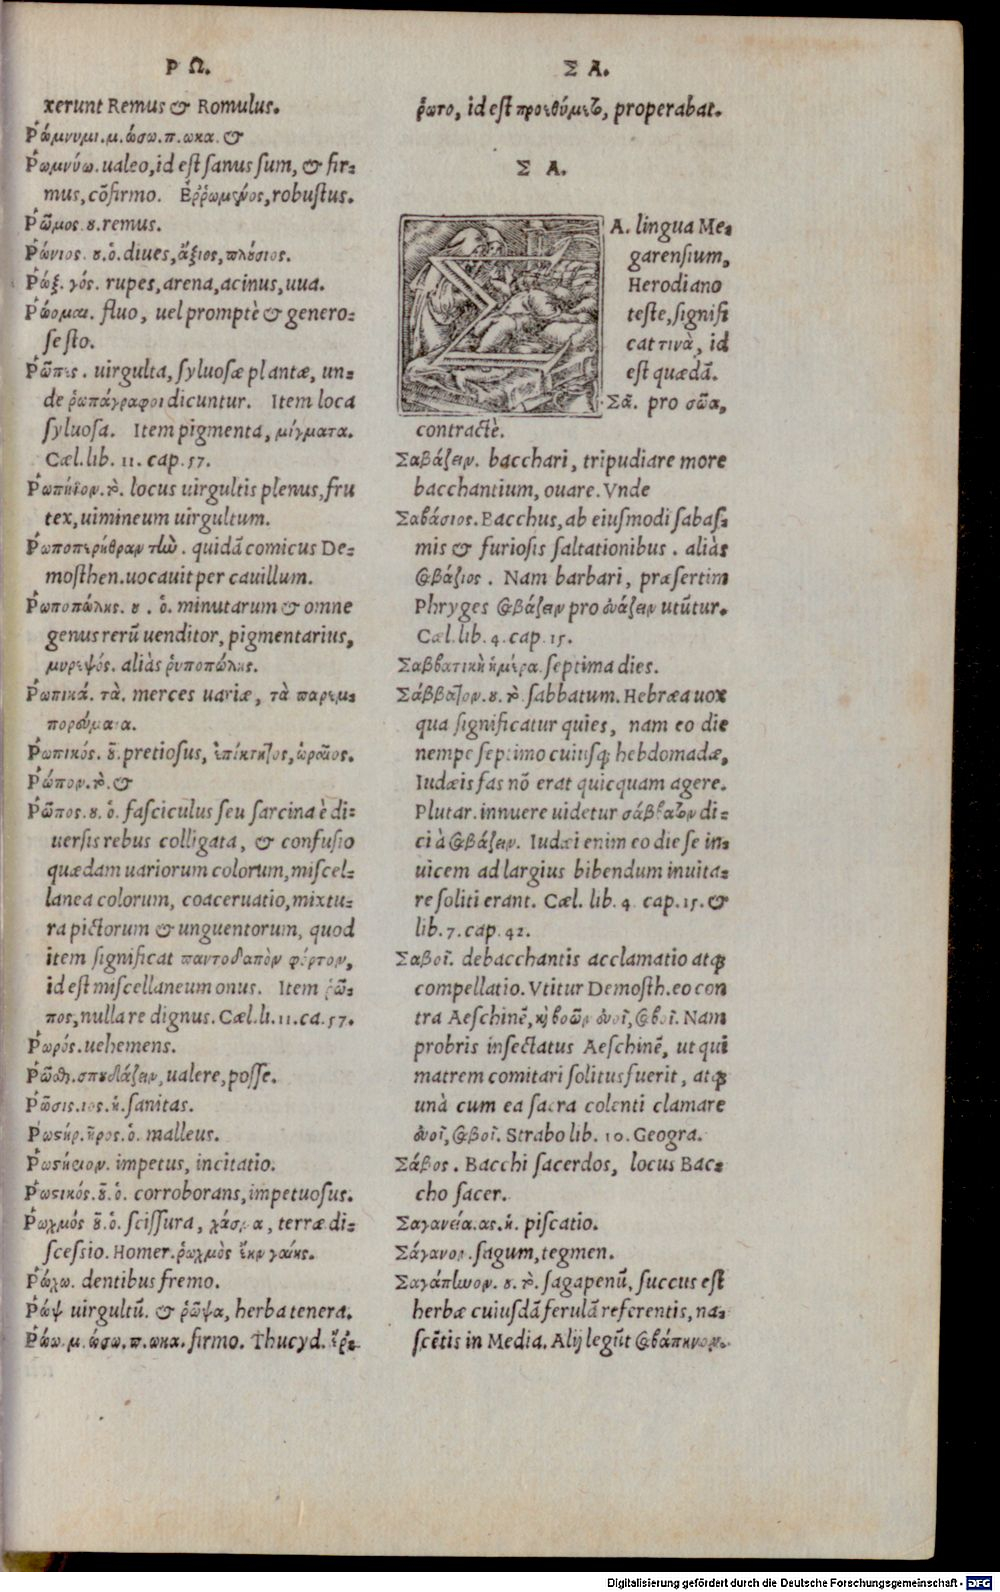 Ρ Ω.
xerunt Remus & Romulus.
Ῥώμνυμι. μ. ώσω. π. ωκα. &
Ῥωμνύω. ualeo, id est sanus sum, & fir=
mus, cõfirmo. Ἐῤῥωμένος, robustus.
Ῥῶμος. ȣ. remus.
Ῥώνιος. ȣ. ὁ. diues, ἄξιος, πλȣ́σιος.
Ῥώξ. γός. rupes, arena, acinus, uua.
Ῥώομαι. fluo, uel promptè & genero=
se sto.
Ῥῶπες. uirgulta, syluosæ plantæ, un=
de ῥωπάγραφοι dicuntur. Item loca
syluosa. Item pigmenta, μίγματα.
Cæl. lib. 11. cap. 57.
Ῥωπήϊον. τὸ. locus uirgultis plenus, fru
tex, uimineum uirgultum.
Ῥωποπερήθραν τὼ. quidã comicus De=
mosthen. uocauit per cauillum.
Ῥωποπώλης. ȣ. ὁ. minutarum & omne
genus rerũ uenditor, pigmentarius,
μυρεψός. aliàs ῥυποπώλης.
Ῥωπικά. τὰ. merces uariæ, τὰ παρεμ=
πορεύματα.
Ῥωπικός. ȣ͂. pretiosus, ἐπίκτητος, ὡραῖος.
Ῥώπον. τὸ. &
Ῥῶπος. ȣ. ὁ. fasciculus seu sarcina è di=
uersis rebus colligata, & confusio
quædam uariorum colorum, miscel=
lanea colorum, coaceruatio, mixtu=
ra pictorum & unguentorum, quod
item significat παντοδαπὸν φόρτον,
id est miscellaneum onus. Item ῥῶ=
πος, nulla re dignus. Cæl. li. 11. ca. 57.
Ῥωρός. uehemens.
Ῥῶσθαι. σπȣδάζειν, ualere, posse.
Ῥῶσις. ιος. ἡ. sanitas.
Ῥωστήρ. ῆρος. ὁ. malleus.
Ῥωστήιον. impetus, incitatio.
Ῥωστικός. ȣ͂. ὁ. corroborans, impetuosus.
Ῥωχμός ȣ͂. ὁ. scissura, χάσμα, terræ di=
scessio. Homer. ῥωχμὸς ἔην γαίης.
Ῥώχω. dentibus fremo.
Ῥώψ uirgultũ. & ῥῶψα, herba tenera.
Ῥώω. μ. ώσω. π. ωκα. firmo. Thucyd. ἔῤῥ-
Σ Α.
ῥωτο, id est προεθύμειτο, properabat.
Σ Α.
ΣΑ. lingua Me=
garensium,
Herodiano
teste, signifi
cat τινὰ, id
est quædã.
Σᾶ. pro σῶα,
contractè.
Σαβάζειν. bacchari, tripudiare more
bacchantium, ouare. Vnde
Σαβάσιος. Bacchus, ab eiusmodi sabas=
mis & furiosis saltationibus. aliàs
σαβάζιος. Nam barbari, præsertim
Phryges σαβάζειν pro εὐάζειν utũtur.
Cæl. lib. 4. cap. 15.
Σαββατικὴ ἡμέρα. septima dies.
Σάββατον. ȣ. τὸ. sabbatum. Hebræa uox
qua significatur quies, nam eo die
nempe septimo cuiusq; hebdomadæ,
Iudæis fas nõ erat quicquam agere.
Plutar. innuere uidetur σάββατον di=
ci à σαβάζειν. Iudæi enim eo die se in=
uicem ad largius bibendum inuita=
re soliti erant. Cæl. lib. 4. cap. 15. &
lib. 7. cap. 42.
Σαβοῖ. debacchantis acclamatio atq;
compellatio. Vtitur Demosth. eo con
tra Aeschinẽ, καὶ βοῶν εὐοῖ, σαβοῖ. Nam
probris insectatus Aeschinẽ, ut qui
matrem comitari solitus fuerit, atq;
unà cum ea sacra colenti clamare
εὐοῖ, σαβοῖ. Strabo lib. 10. Geogra.
Σάβος. Bacchi sacerdos, locus Bac=
cho sacer.
Σαγανεία. ας. ἡ. piscatio.
Σάγανον. sagum, tegmen.
Σαγάπηνον. ȣ. τὸ. sagapenũ, succus est
herbæ cuiusdã ferulã referentis, na=
scẽtis in Media. Alij legũt σαβάπηνον.
Digitalisierung gefördert durch die Deutsche Forschungsgemeinschaft - DFG